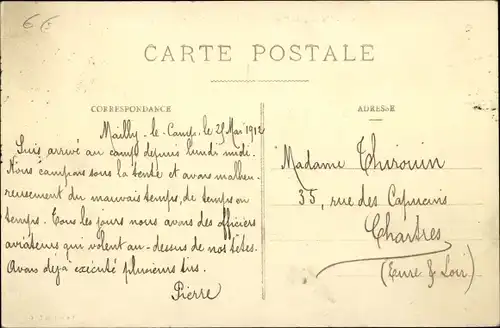 6 E
CARTE POSTALE
CORRESPONDANCE
ADRESSE
Mailly-le-Camp, le 29 Mai 1912
Suis arrivé au camp depuis lundi midi.
Nous campons sous la tente et avons malheu-
reusement du mauvais temps, de temps en
temps. Tous les jours nous avons des officiers
aviateurs qui volent au-dessus de nos têtes.
Avons dejà exécuté plusieurs tirs.
Pierre
Madame Thirouin
35, rue des Capucins
Chartres
(Eure & Loir)